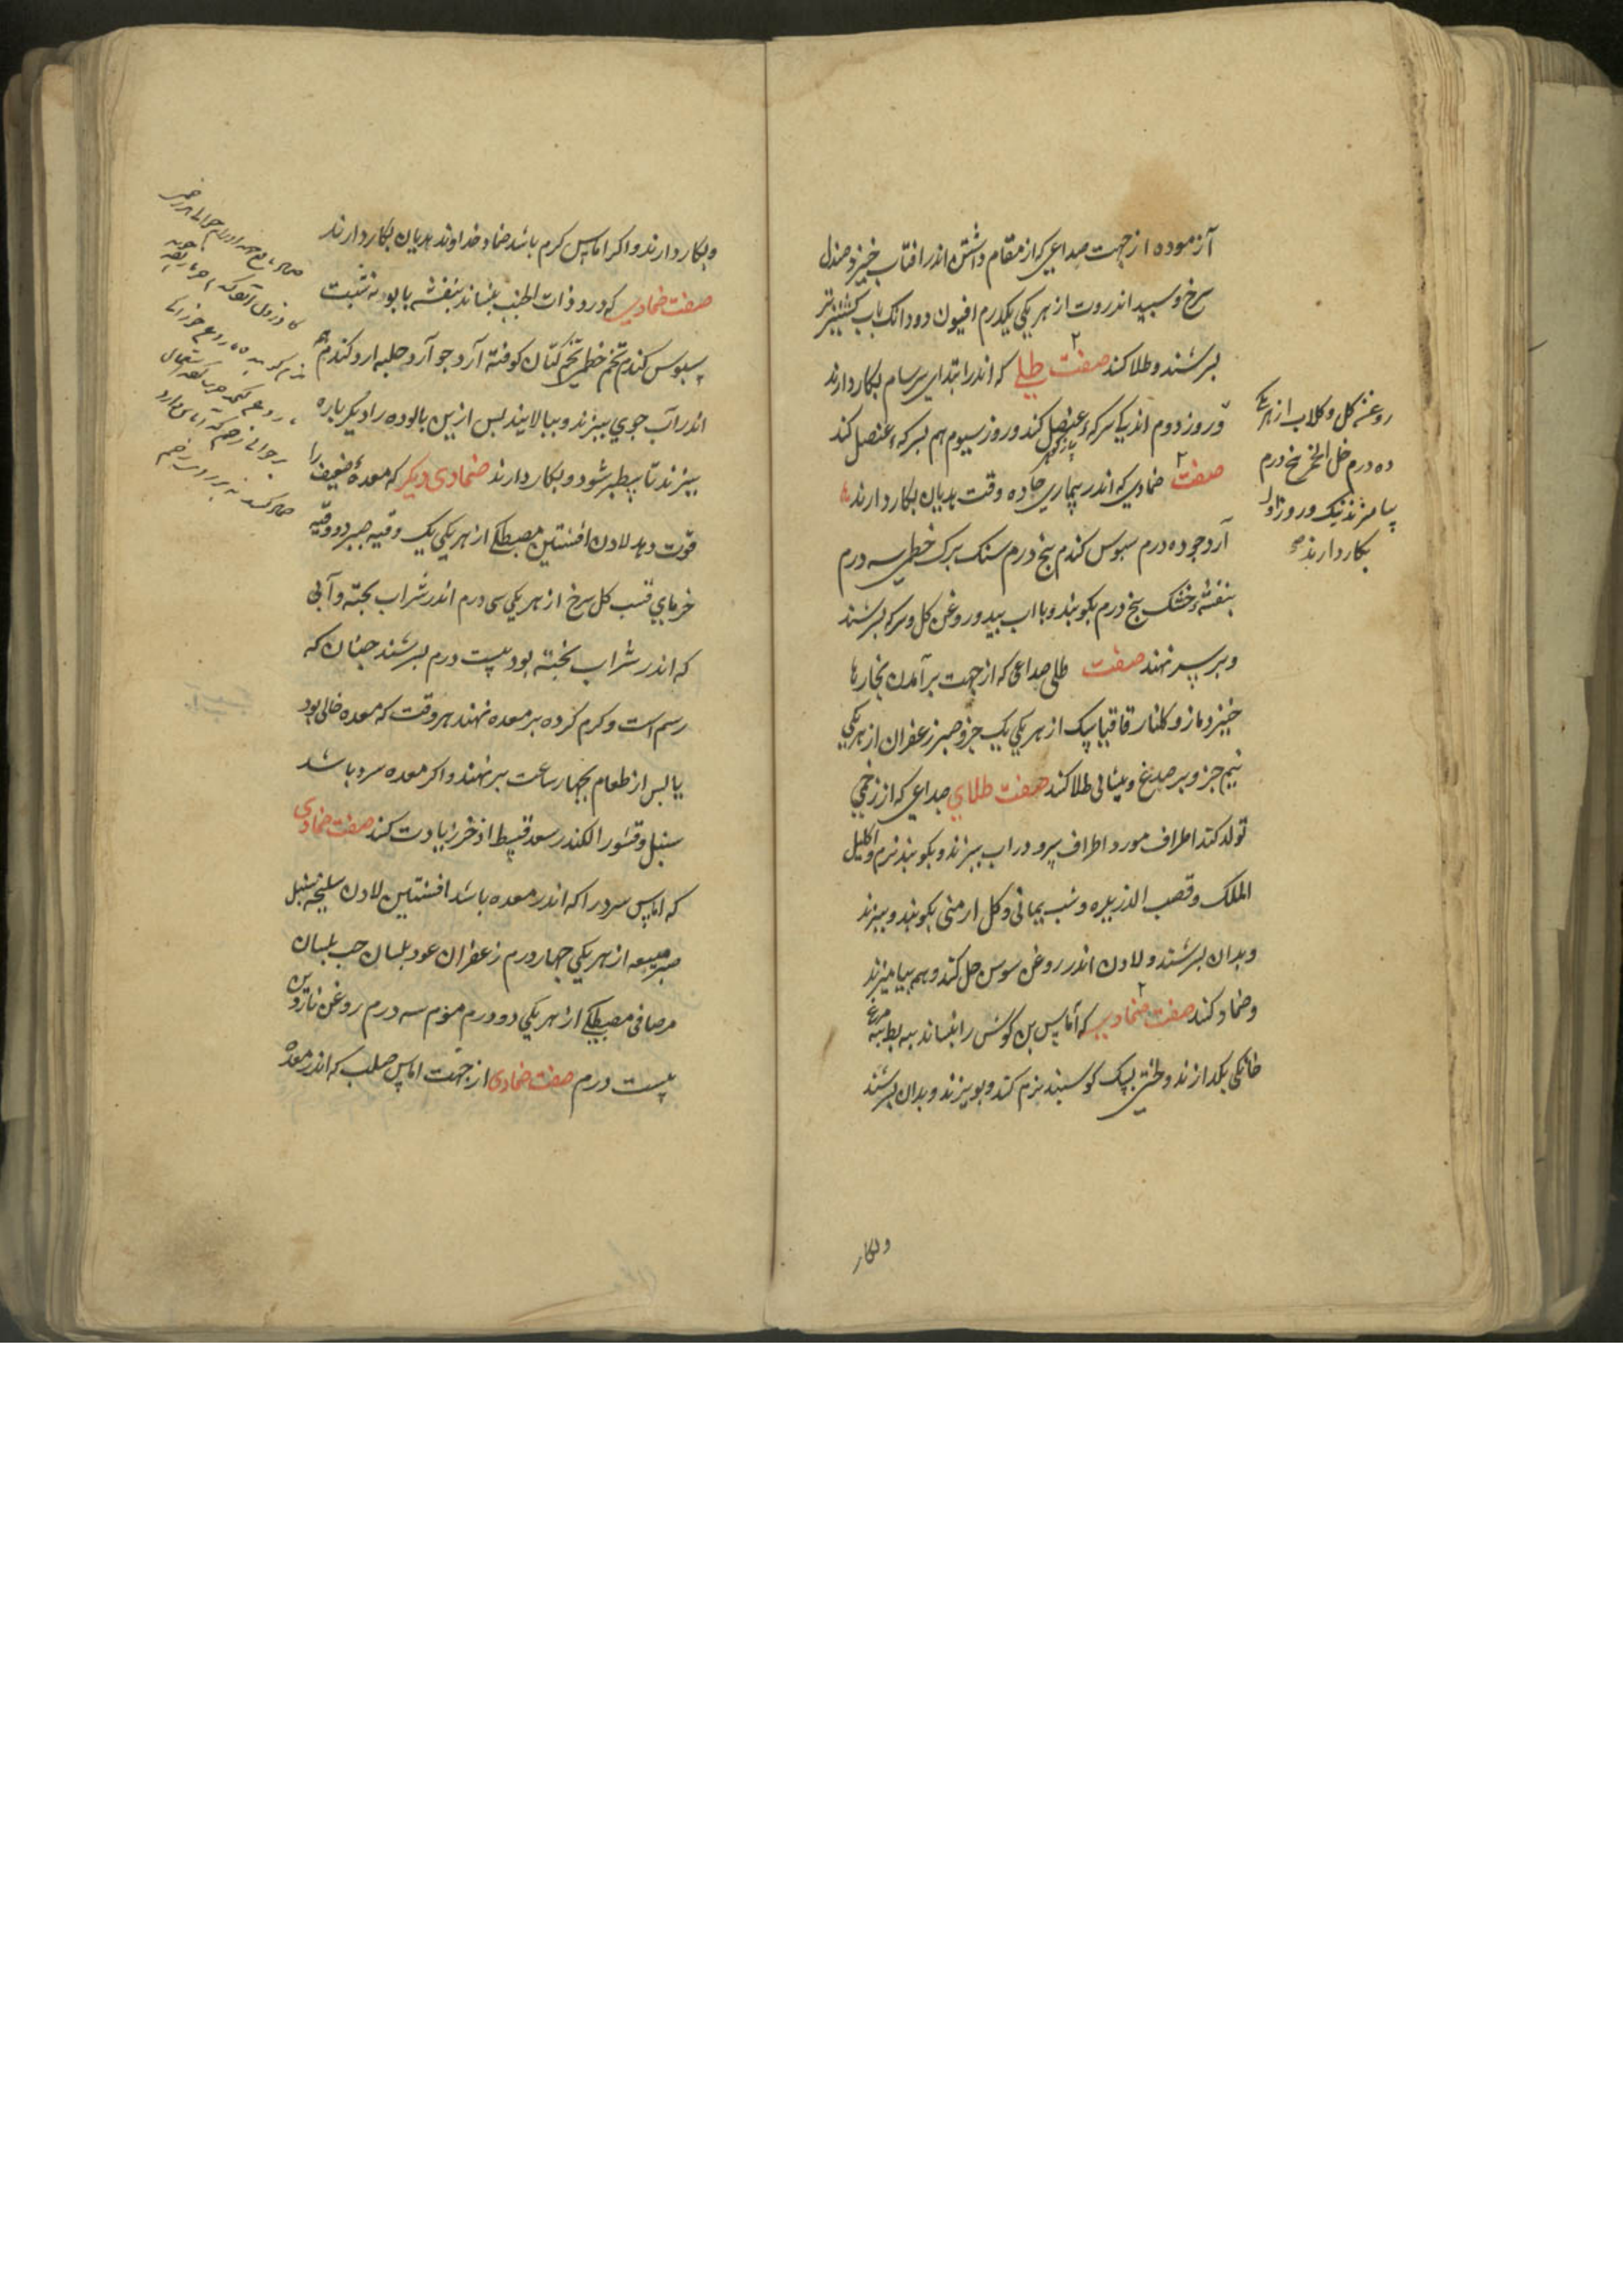 آزموده از جهت صداعی که از مقام داشتن اندر افتاب خیزد صندل
سرخ و سپید اندروت از هر یکی یکدرم افیون دودانک باب کشنیز تر
بسرشند و طلا کند صفت طلی که اندر ابتدای سرسام بکار دارند
روغن کل و کلاب از هر یکی
ده درم خل الخمر پنج درم
بیامیزند نیک و روز اول
بکار دارند صح
و روز دوم اندکی سرکه عنصل کند و روز سیوم هم بسرکه عنصل کند
صفت ضمادی که اندر بیماری حاده وقت هذیان بکار دارند
آرد جو ده درم سبوس کندم پنج درم سنک برک خطمی سه درم
بنفشه خشک پنج درم بکوبند و با اب بید و روغن کل و سرکه بسرشند
و بر سر نهند صفت طلی صداعی که از جهت برآمدن بخارها
خیزد مازو کلنار قاقیا سک از هر یکی یک جزو صبر زعفران از هر یکی
نیم جزو بر صدغ و پیشانی طلا کند صفت طلای صداعی که از زخمی
تولد کند اطراف مورد اطراف سرو در اب بپزند و بکوبند نرم و اکلیل
الملک و قصب الذریره و شب یمانی و کل ارمنی بکوبند و ببزند
و بدان بسرشند و لادن اندر روغن سوسن حل کند و بهم بیامیزند
و ضماد کند صفت ضمادی که آماس بن کوش را بنشاند پیه بط پیه مرغ
خانکی بکدازند و لختی پشک کوسپند نرم کند و ببیزند و بدان بسرشند
و بکار
و بکار دارند و اکر اماس کرم باشد ضماد خداوند هذیان بکار دارند
صفت ضمادی که درد ذات الجنب بنشاند بنفشه بابونه شبت
سبوس کندم تخم خطمی تخم کتان کوفته آرد جو آرد حلبه ارد کندم
اندر آب جوی بپزند و بپالایند پس ازین پالوده را دیکر باره
بپزند تا سطبر شود و بکار دارند ضمادی دیکر که معدهٔ ضعیف را
قوت دهد لادن افسنتین مصطکی از هر یکی یک وقیه صبر دو وقیه
خرمای قسب کل سرخ از هر یکی سی درم اندر شراب پخته و آبی
که اندر شراب پخته بود بیست درم بسرشند چنان که
رسم است و کرم کرده بر معده نهند هر وقت که معده خالی بود
یا پس از طعام بچهار ساعت برنهند و اکر معده سرد باشد
سنبل و قشور الکندر سعد قسط اذخر زیادت کند صفت ضمادی
که اماس سرد را که اندر معده باشد افسنتین لادن سلیخه سنبل
صبر میعه از هر یکی چهار درم زعفران عود بلسان حب بلسان
مر صافی مصطکی از هر یکی دو درم موم سه درم روغن ناردین
بیست درم صفت ضمادی از جهت اماس صلب که اندر معده